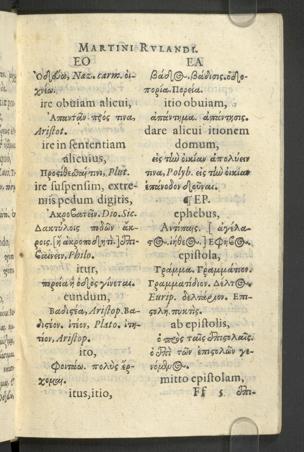 MARTINI RVLANDI.
EO
Ὁδεύω, Naz. carm. οἰ-
χέω.
ire obuiam alicui,
Ἀπαντᾷν πρός τινα,
Aristot.
ire in sententiam
alicuius,
Plut.
ire suspensim, extre-
mis pedum digitis,
Ἀκροβατεῖν. Dio. Sic.
Δακτύλοις ποδῶν ἄκ-
ροις. ἢ ἀκροποδητὶ ἐπι-
βαίνειν, Philo.
itur,
πορεία ἢ ὁδὸς γίνεται.
eundum,
Βαδιστέα, Aristop. Βα-
διστέον. ἰτέον, Plato. ἰτη-
τέον, Aristop.
ito,
Φοιτάω. πολὺς ἔρ-
χομαι.
itus, itio,
EA
βάδος. βάδισις. ὁδοι-
πορία. Πορεία.
itio obuiam,
ἀπάντημα. ἀπάντησις.
dare alicui itionem
domum,
εἰς τὴν οἰκίαν ἀπολύειν
τινα, Polyb. εἰς τὴν οἰκίαν
ἐπάνοδον
¶ EP.
ephebus,
Ἀντίπαις. [ ἀγέλα-
τος. ] Ἔφηβος.
epistola,
Γράμμα. Γραμμάτιον.
Γραμματίδιον. Δέλτος
Eurip. δελτάριον. Ἐπι-
στολή. πυκτίς.
ab epistolis,
ὁ πρὸς ταῖς ἐπιστολαῖς.
ὁ ἐπὶ τῶν ἐπιστολῶν γε-
νόμενος.
mitto epistolam,
Ff 5 ἐπι-